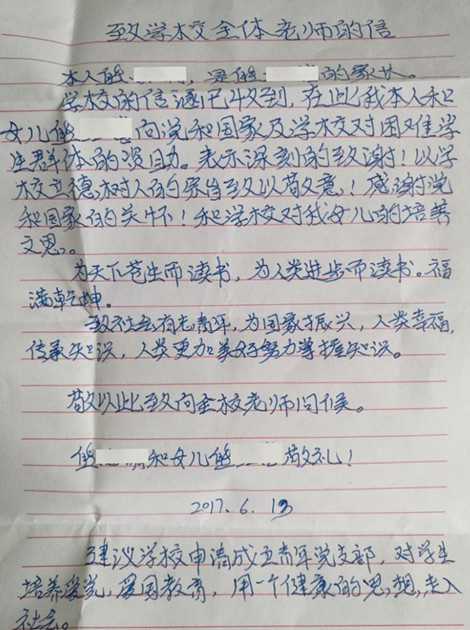 致学校全体老师的信
本人熊，是熊的家长。
学校的信，逐已收到，在此我本人和
女儿熊向党和国家及学校对困难学
生群体的资助。表示深刻的致谢！以学
校立德树人的宗旨致以敬意！感谢党
和国家的关怀！和学校对我女儿的培养
之恩。
为天下苍生而读书，为人类进步而读书。福
满乾坤。
致社会有志青年，为国家振兴，人类幸福，
传承知识，人类更加美好努力掌握知识。
敬以此致向全校老师问候。
熊和女儿熊敬礼！
2017.6.13
建议学校申请成立青年党支部，对学生
培养爱党，爱国教育，用一个健康的思想，走入
社会。